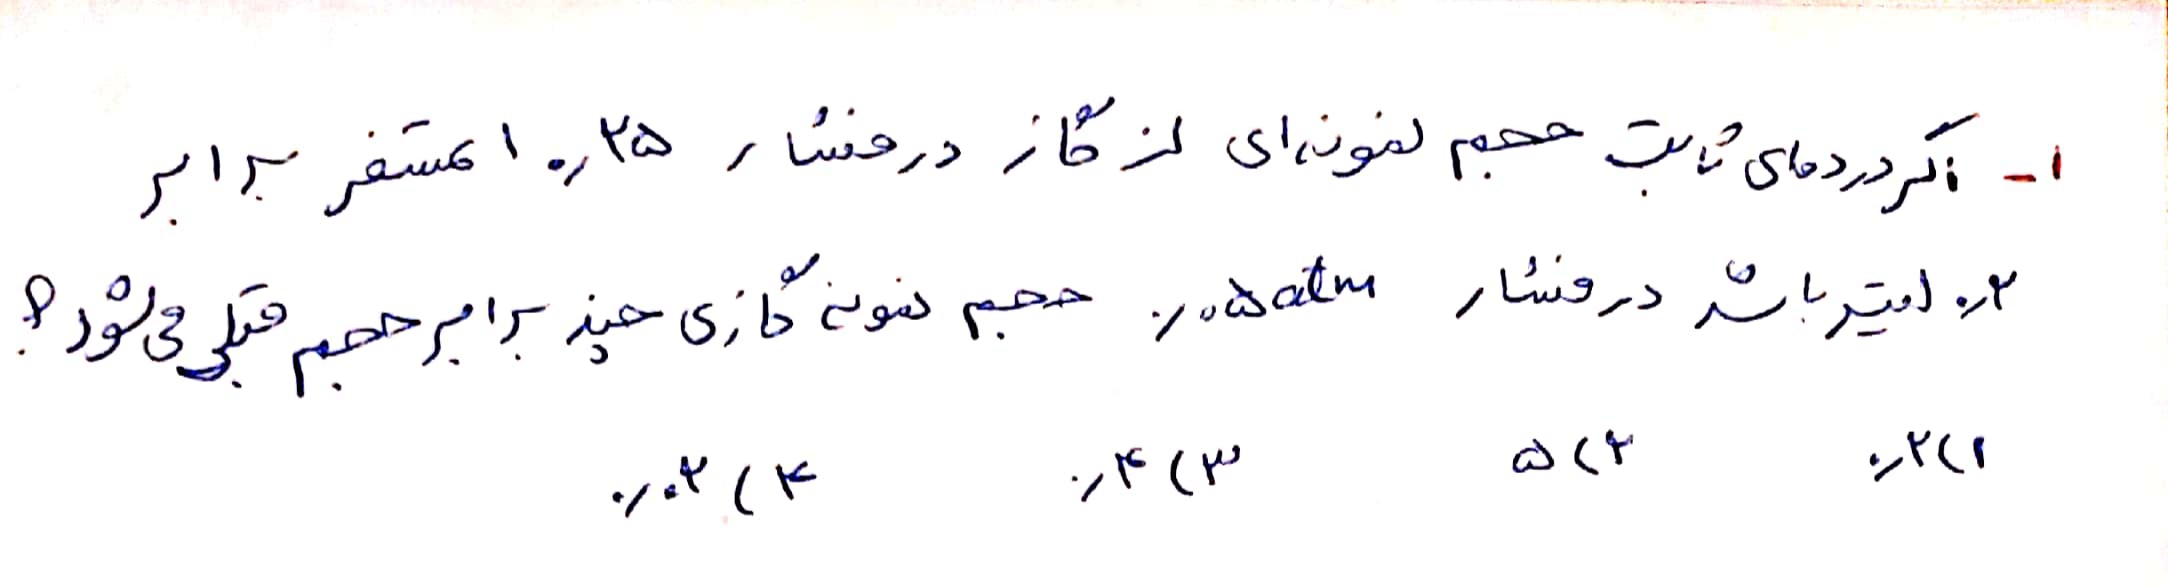 ۱- اگر در دمای ثابت حجم نمونه‌ای از گاز در فشار ۰٫۲۵ اتمسفر برابر
۰٫۲ لیتر باشد در فشار ۰٫۰۵ atm حجم نمونه گازی چند برابر حجم قبلی می‌شود؟
۱) ۰٫۲ ۲) ۵ ۳) ۰٫۴ ۴) ۰٫۰۲